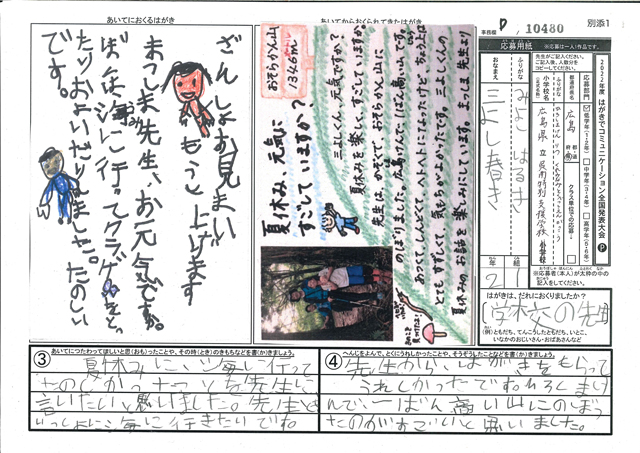 別添1
事務局 P 10480
応募用紙
※応募は一人1作品です。
2022年度 はがきでコミュニケーション全国発表大会
応募部門
低学年(1・2年)
中学年(3・4年)
高学年(5・6年)
都道府県名
広島
小学校名
ふりがな
みよし はるき
おなまえ
三よし春き
2年
1組
はがきは、だれにおくりましたか?
(学校の先生)
(例)ともだち、てんこうしたともだち、いとこ、
いなかのおじいさん・おばあさんなど
あいてからおくられてきたはがき
夏休み 元気に
すごしていますか?
おそらかん山
1346m
三よしくん、元気ですか?
夏休みを楽しく、すごしていますか。
先生は、かぞくで、おそらかん山に
のぼりました。広島けんで、1ばん高い山です。
あつくて、しんどくて、ヘトヘトになったけど、ちょう上は
とてもすずしくて、気もちがよかったです。三よしくんの
夏休みのお話を楽しみにしています。まつしま先生より
あいてにおくるはがき
ざんしょお見まい
もうし上げます
まつしま先生、お元気ですか。
ぼくは海に行ってクラゲをとっ
たりおよいだりしました。たのしい
です。
③ あいてにつたわってほしいと思(おも)ったことや、その時(とき)のきもちなどを書(か)きましょう。
夏休みに、海に行って
たのしかったことを先生に
言いたいと思いました。先生と
いっしょに海に行きたいです。
④ へんじをよんで、とくにうれしかったことや、そうぞうしたことなどを書(か)きましょう。
先生から、はがきをもらって
うれしかったです。ひろしまけ
んで一ばん高い山にのぼっ
たのがすごいと思いました。